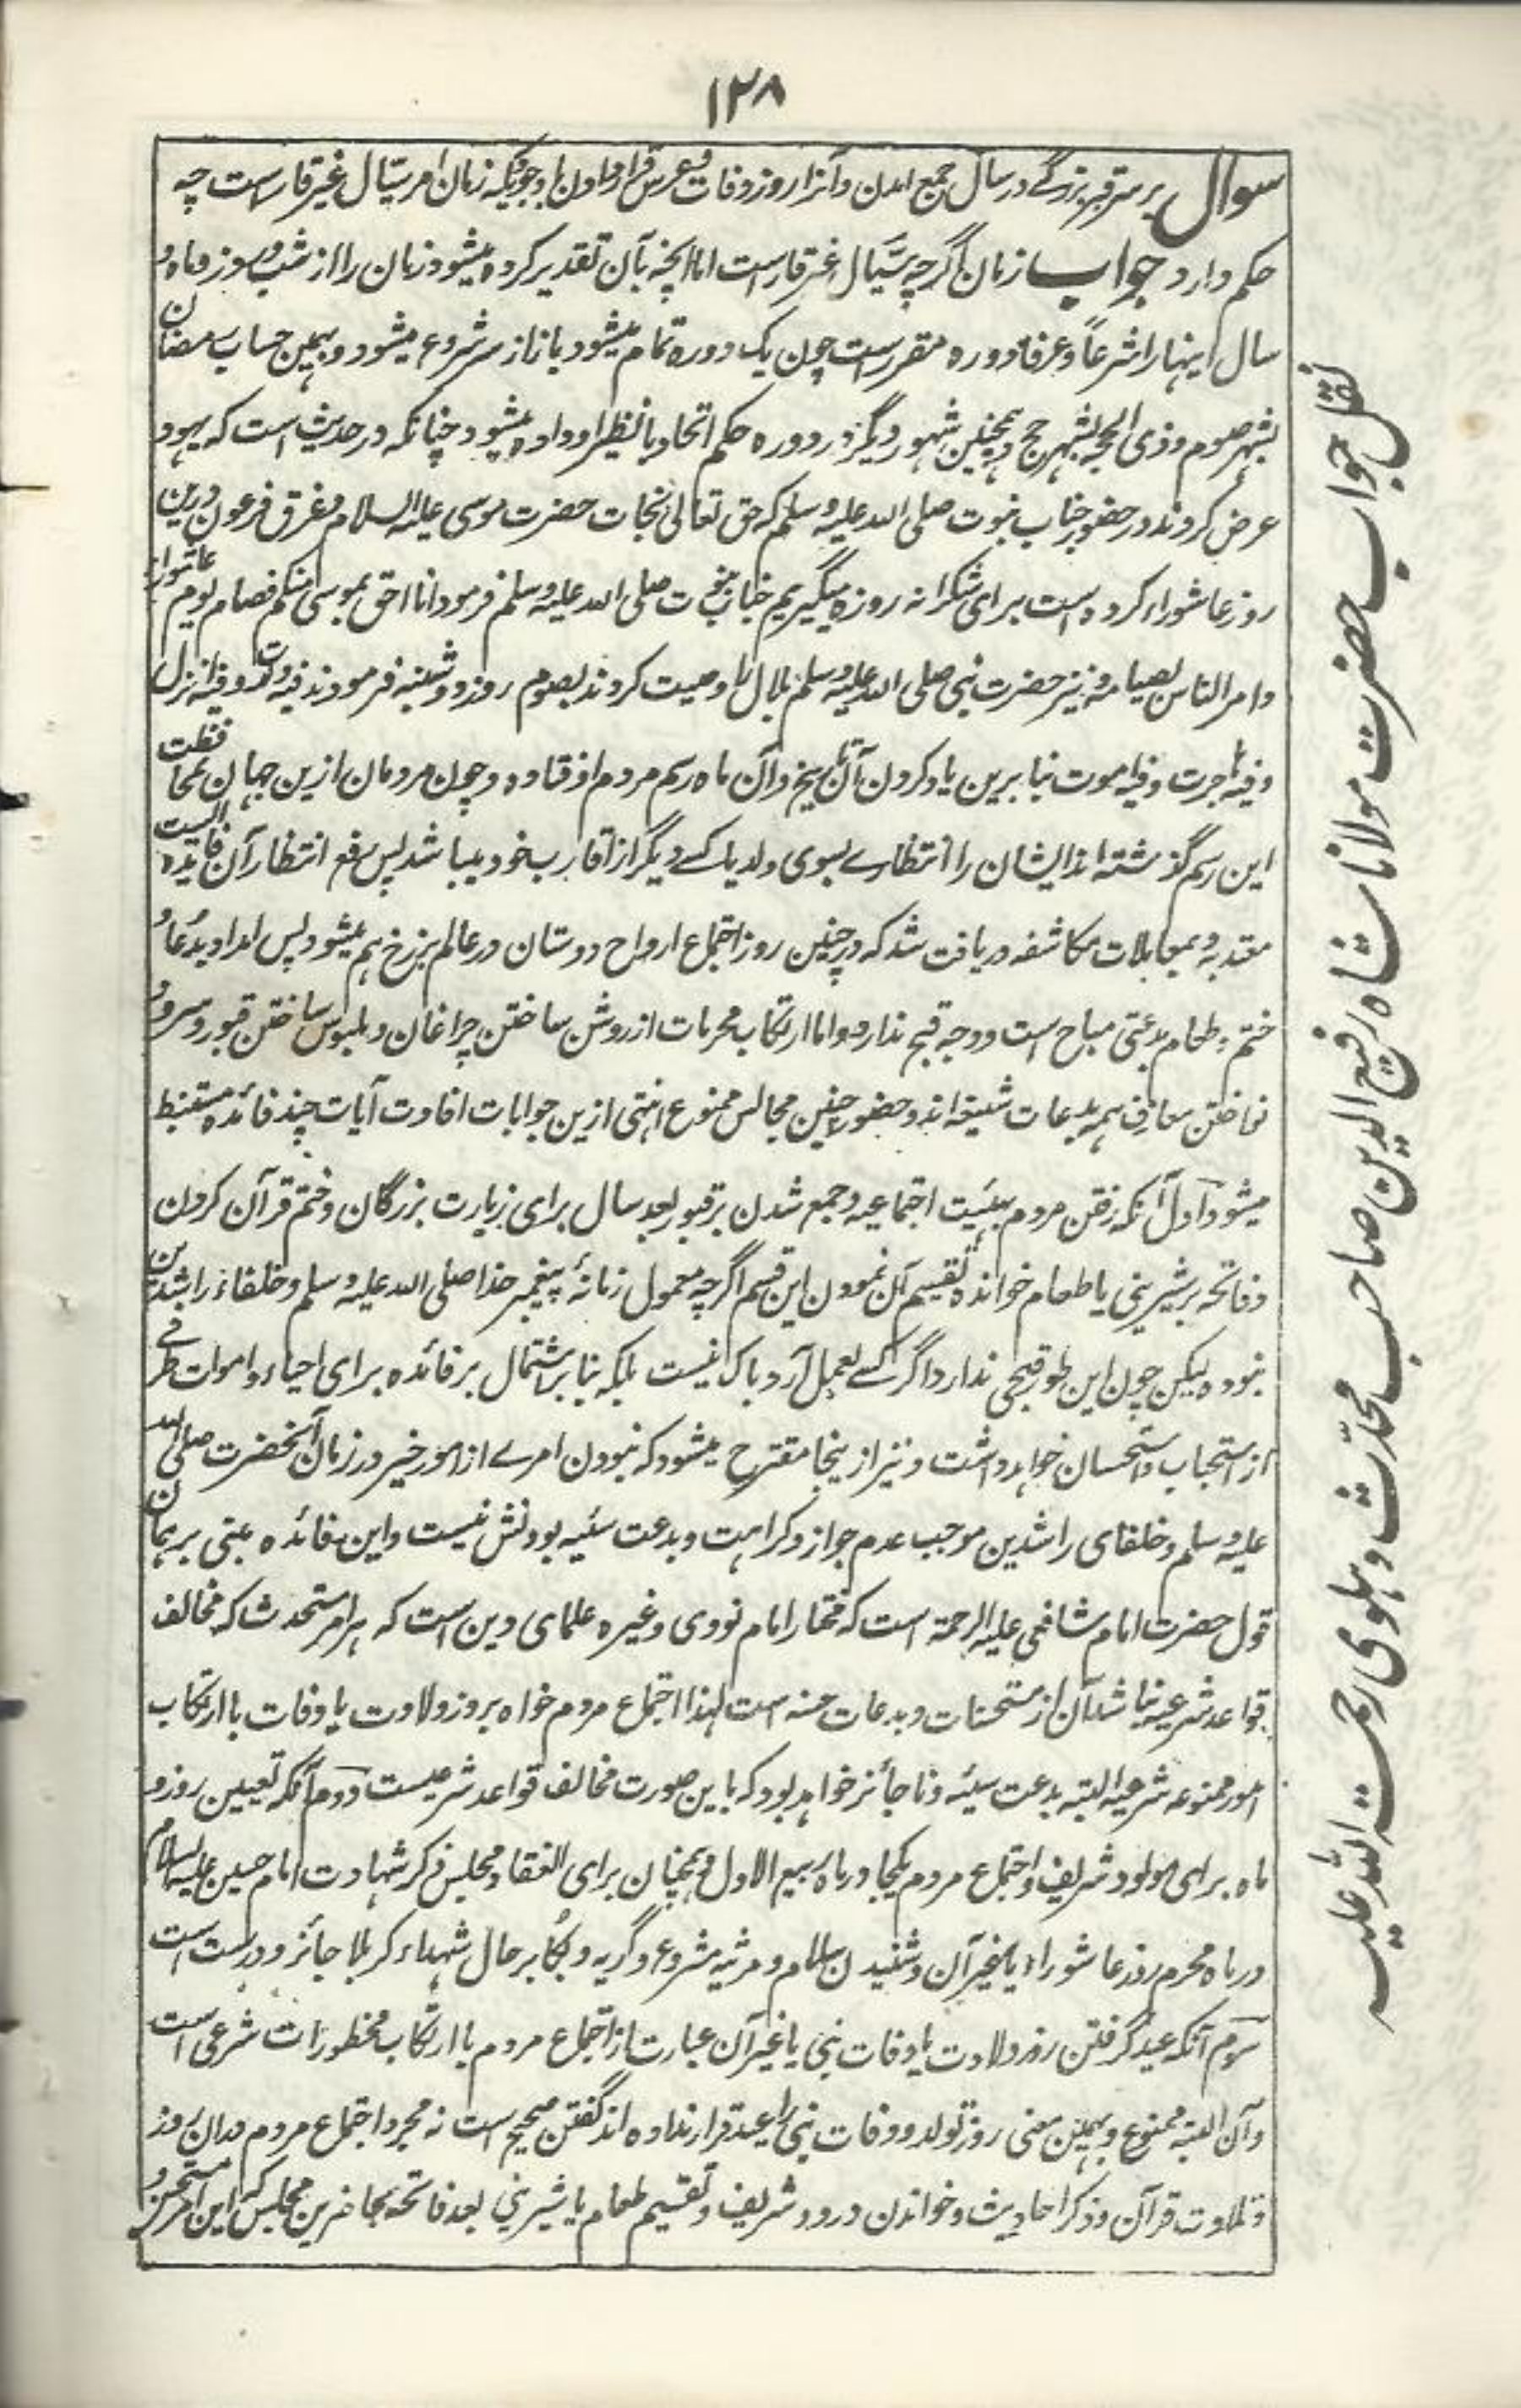 ۱۲۸
سوال بر سر قبر بزرگے در سال جمع آمدن و آنرا روز وفات و عرس قرار دادن با وجودیکه زمان امر سیّال غیر قار ست چه
حکم دارد جواب زمان اگرچه سیَّال غیر قار است اما آنچه بآن تقدیر کرده میشود زمان را از شب و روز و ماه و
سال اینها را شرعاً و عرفاً دوره مقررست چون یک دوره تمام میشود باز از سر شروع میشود و بهمین حساب رمضان
بشهر صوم و ذی الحجه بشهر حج و همچنین شهور دیگر در دوره حکم اتحاد با نظیر او داده میشود چنانکه در حدیث است که یهود
عرض کردند در حضور جناب نبوت صلی الله علیه وسلم که حق تعالی نجات حضرت موسی علیه السلام و غرق فرعون درین
روز عاشوراء کرده است برای شکرانه روزه میگیریم جناب نبوت صلی الله علیه وسلم فرمود انا احق بموسی منکم فصام یوم عاشوراء
و امر الناس بصیامه و نیز حضرت نبی صلی الله علیه وسلم بلال را وصیت کردند بصوم روز دوشنبه فرمودند فیه ولدت و فیه انزل
و فیه هاجرت و فیه اموت بنا برین یاد کردن آن تاریخ و آن ماه رسم مردم افتاده و چون مردمان ازین جهان بمحافظت
این رسم گذشته اند ایشان را انتظارے بسوی ولد یا کسے دیگر از اقارب خود میباشد پس رفع انتظار آن فایدہ ایست
معتد به و بمعاملات مکاشفه دریافت شد که در چنین روز اجتماع ارواح دوستان در عالم برزخ هم میشود پس امداد بدُعا و
ختم و طعام بدعتی مباح است و وجه قبح ندارد و اما ارتکاب محرمات از روشن ساختن چراغان و ملبوس ساختن قبور و سرود
نواختن معازف همه بدعات شنیعه اند و حضور چنین مجالس ممنوع انتهی ازین جوابات افادت آیات چند فائده مستنبط
میشود اول آنکه رفتن مردم بهیئت اجتماعیه و جمع شدن بر قبور بعد سال برای زیارت بزرگان و ختم قرآن کردن
و فاتحه بر شیرینی یا طعام خوانده تقسیم آن نمودن این قسم اگرچه معمول زمانۂ پیغمبر خدا صلی الله علیه وسلم و خلفاء راشدین
نبوده لیکن چون این طور قبحی ندارد اگر کسے بعمل آرد باک نیست بلکه بنا بر اشتمال بر فائده برای احیاء و اموات طرفے
از استحباب و استحسان خواهد داشت و نیز ازینجا مقترح میشود که نبودن امرے از امور خیر در زمان آنحضرت صلی الله
علیه وسلم و خلفای راشدین موجب عدم جواز و کراهت و بدعت سئیه بودنش نیست و این فائده مبتنی بر همان
قول حضرت امام شافعی علیه الرحمة است که مختار امام نووی و غیره علمای دین است که هر امر مستحدث که مخالف
قواعد شرعیه نباشد آن از مستحسنات و بدعات حسنه است لهذا اجتماع مردم خواه بروز ولادت یا وفات با ارتکاب
امور ممنوعه شرعیه البته بدعت سیئه و ناجائز خواهد بود که باین صورت مخالف قواعد شرعیست دوم آنکه تعیین روز و
ماه برای مولود شریف و اجتماع مردم یکجا در ماه ربیع الاول و همچنان برای انعقاد مجلس ذکر شهادت امام حسین علیه السلام
در ماه محرم روز عاشوراء یا غیر آن و شنیدن سلام و مرثیه مشروع و گریه و بُکا بر حال شهداء کربلا جائز و درست است
سوم آنکه عید گرفتن روز ولادت یا وفات نبی یا غیر آن عبارت از اجتماع مردم با ارتکاب محظورات شرعی است
و آن البته ممنوع و بهمین معنی روز تولد و وفات نبی را عید قرار نداده اند گفتن صحیح است نه مجرد اجتماع مردم در آن روز
و تلاوت قرآن و ذکر احادیث و خواندن درود شریف و تقسیم طعام یا شیرینی بعد فاتحه بحاضرین مجلس که این امر مستحسن و
نقل جواب حضرت مولانا شاه رفیع الدین صاحب محدّث دہلوی رحمت الله علیه